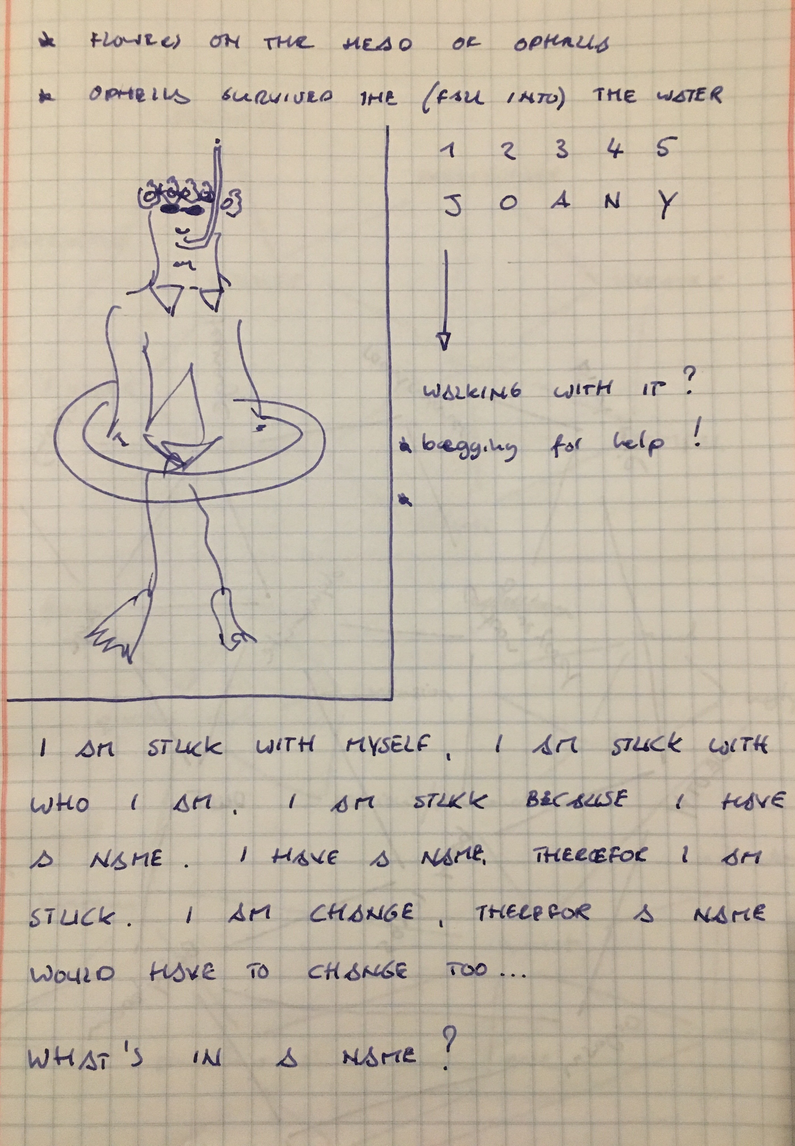 * FLOWERS ON THE HEAD OF OPHELIA
* OPHELIA SURVIVED THE (FALL INTO) THE WATER
1 2 3 4 5
J O A N Y
WALKING WITH IT ?
* begging for help !
*
I AM STUCK WITH MYSELF, I AM STUCK WITH
WHO I AM. I AM STUCK BECAUSE I HAVE
A NAME. I HAVE A NAME, THEREFOR I AM
STUCK. I AM CHANGE, THEREFOR A NAME
WOULD HAVE TO CHANGE TOO...
WHAT'S IN A NAME ?